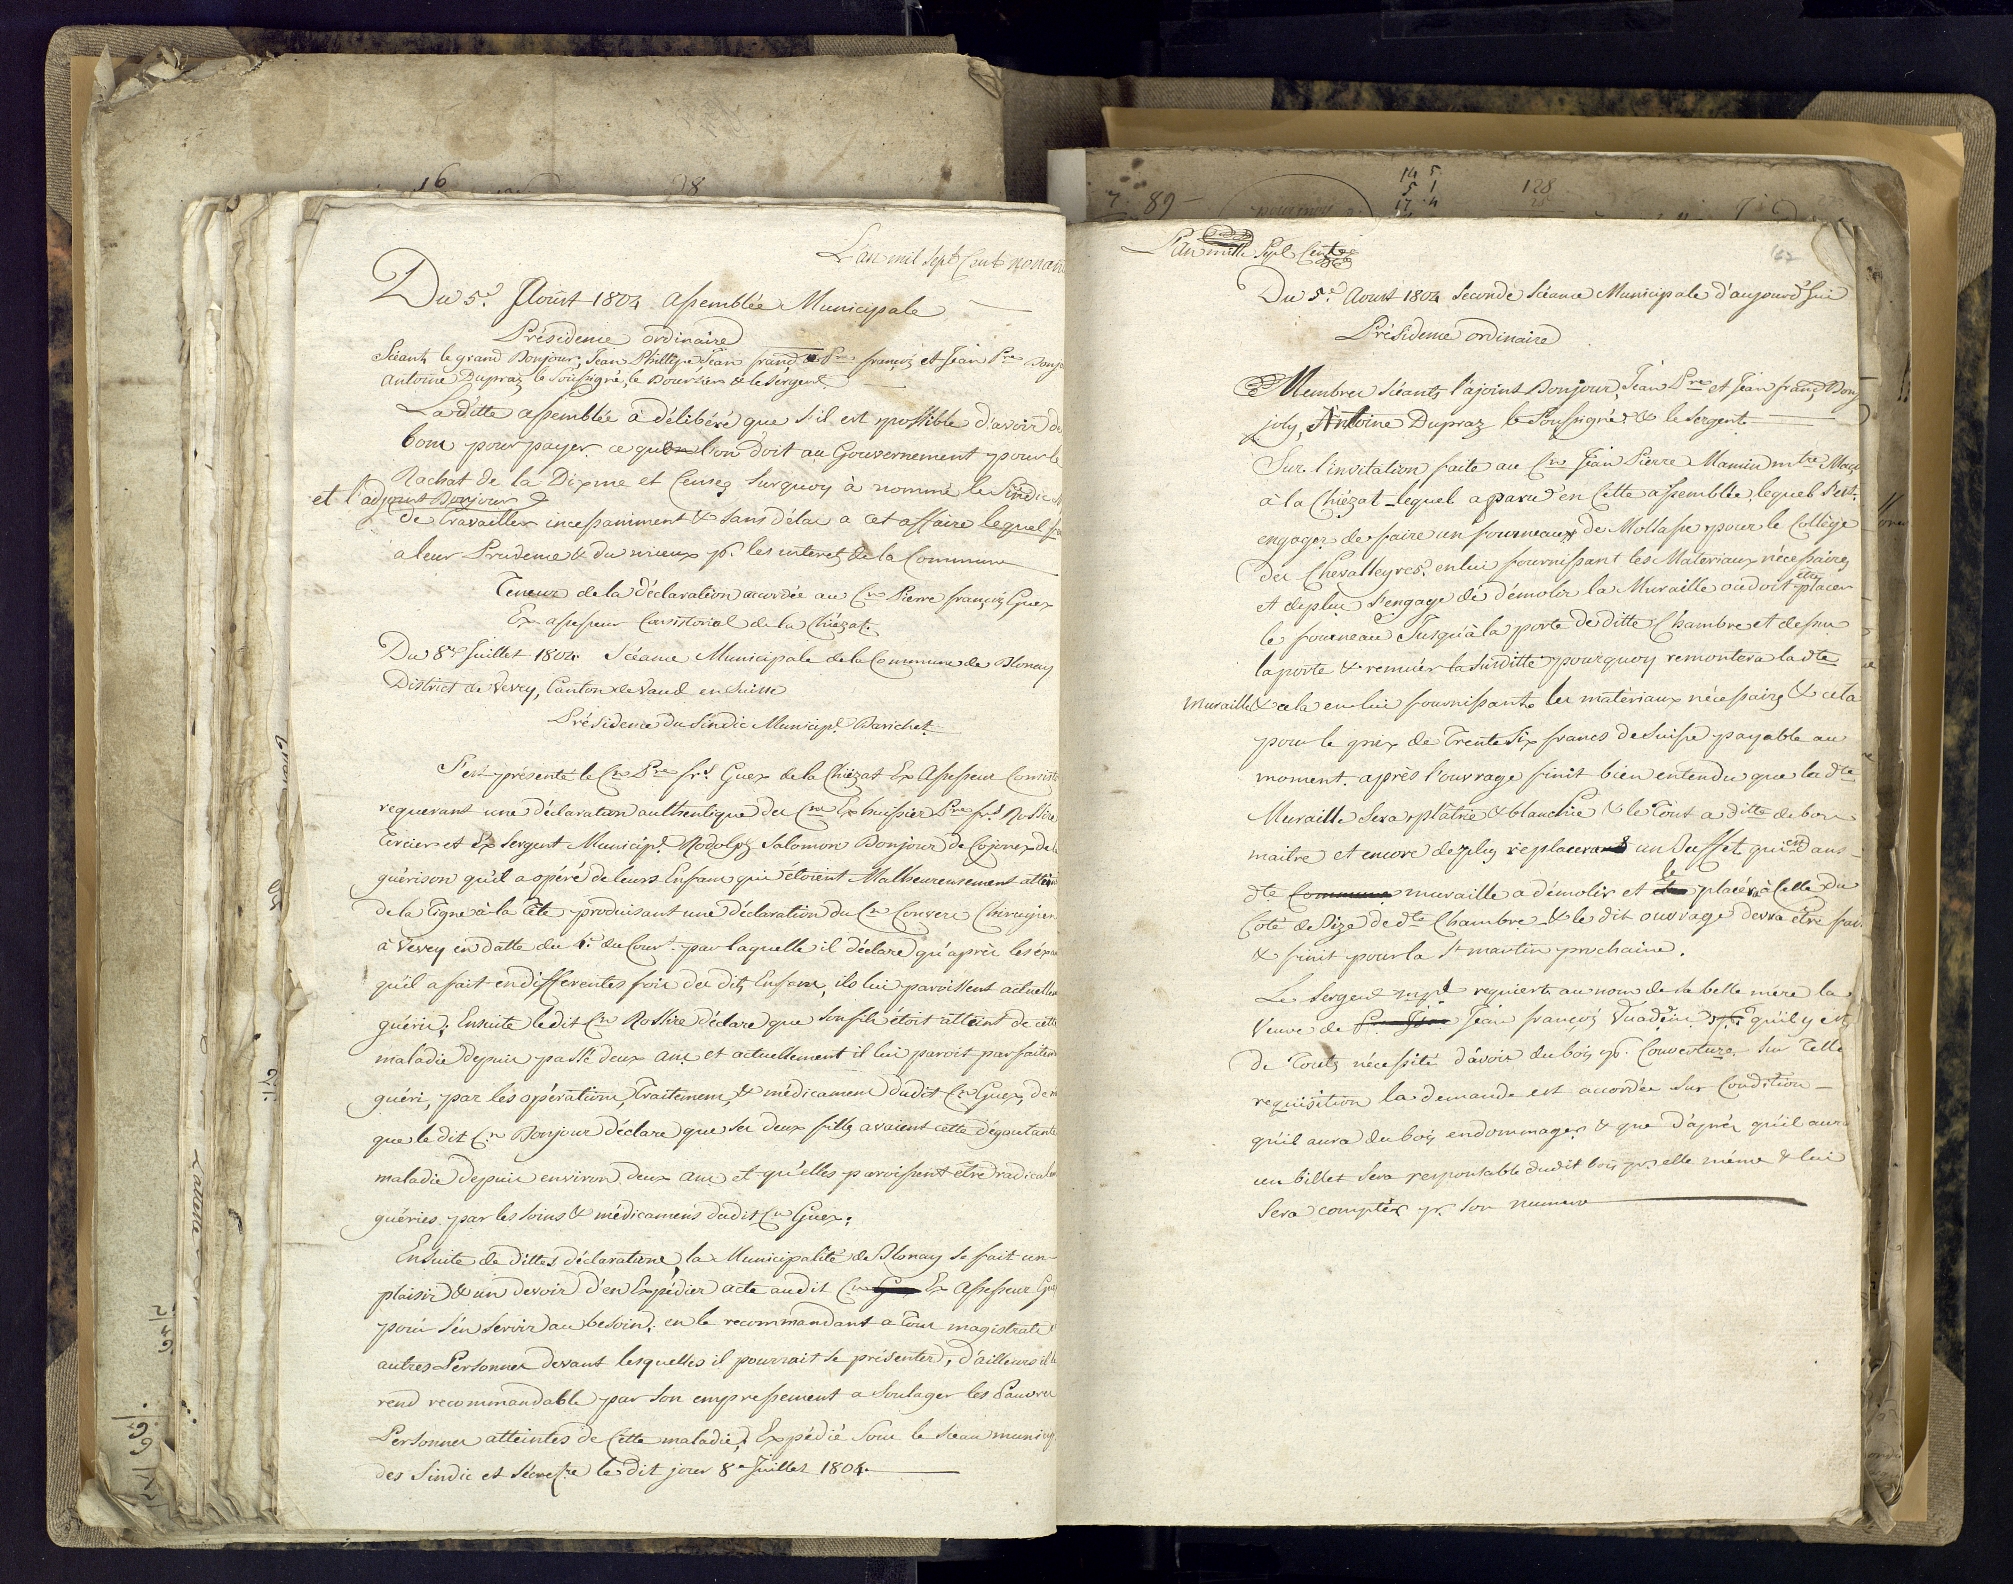 L'an mil Sept Cent nonan
Du 5.e Aoûst 1804 assemblée Municipale
Présidence ordinaire
Séants le grand Bonjour, Jean Phillipe, Jean franç. françois et Jean Pre Bonj
Antoine Dupraz le Soussigné, le Boursier & le Sergent
La ditte assemblée à délibéré que s'il est possible d'avoir de
bons pour payer ce que l'on doit au Gouvernement pour le
Rachat de la Dixme et Censes Surquoy à nommé le Sindic
et l'adjoint Bonjour
de Travailler incessamment & sans délai a cet affaire lequel
a leur Prudence & du mieux pr. les interets de la Commune
Teneur de la déclaration accordée au Cn Pierre françois Guex
Ex assesseur Consistorial de la Chiézat.
Du 8e Juillet 1804 Séance Municipale de la Commune de Blonay
District de Vevey, Canton de Vaud en Suisse
Présidence du Sindic Municipl. Barichet
S'est présenté le Cn Pre frs. Guex de la Chiézat Ex Assesseur Consist
requerant une déclaration authentique des Cns Ex huissier Pre frs
Tercier et Ex Sergent Municipl. Rodolph Salomon Bonjour de Cojonex de la
guérison qu'il a opéré de leurs Enfans qui étoient Malheureusement attein
de la Tigne à la Tête produisant une déclaration du Cn Convers Chirugien
à Vevey en datte du 4e du Court. par laquelle il déclare qu'après les éxa
qu'il a fait en différentes fois des dits Enfans, ils lui paroissent actuellem
guéris; Ensuite le dit Cn déclare que son fils étoit atteint de cette
maladie depuis passé deux ans et actuellement il lui paroit parfaitem
guéri, par les opérations, Traitemens, & médicamens dudit Cn Guex, de m
que le dit Cn Bonjour déclare que ses deux filles avaient cette dégoutante
maladie depuis environ deux ans et qu'elles paroissent être radicalem
guéries par les soins & médicamens dudit Cn Guex;
Ensuite de dittes déclarations, la Municipalité de Blonay se fait un
plaisir & un devoir d'en Expédier acte audit Cn Ex Assesseur Guex
pour s'en servir au besoin; en le recommandant a Tous magistrats
autres Personnes devant lesquelles il pourrait se présenter, d'ailleurs il se
rend recommandable par son empressement a Soulager les Pauvres
Personnes atteintes de Cette maladie, Expédié Sous le Sceau municip
des Sindic et Sécretre le dit jour 8e Juillet 1804
7. 89
L'an mille Sept Cent
Du 5.e Aoust 1804 Seconde Séance Municipale d'aujourd'hui
Présidence ordinaire
Membres Séants, l'ajoint Bonjour, Jean Pre et Jean franç Bonj
joly, Antoine Dupraz le Soussigné & le Sergent
Sur l'invitation faite au Cn Jean Pierre Mamin mtre Maço
à la Chiézat lequel a paru en Cette assemblée lequel s'est
engager de faire un fourneaux de Mollasse pour le Collège
des Chevalleyres, en lui fournissant les Materiaux nécessaires
et de plus s'engage de démolir la Muraille ou doit être placer
le fourneau Jusqu'à la porte de ditte Chambre et dessus
la porte & remuer la Susditte pourquoy remontera la dte
Muraille & cela en lui fournissant les materiaux nécessaires & cela
pour le prix de Trente Six francs de Suisse payable au
moment après l'ouvrage finit bien entendu que la dte
Muraille Sera platrie & blanchie & le Tout a ditte de bon
maitre et encore de plus replacera un Buffet qui est dans
dte muraille a démolir et le placéra à Celle du
Coté de Bize de dte Chambre & le dit ouvrage devra être fai
& finit pour la St martin prochaine.
Le Sergent mpl. requiert au nom de Sa belle mère la
Veuve de Jean françois Vuadens qu'il y est
de Toute nécessité d'avoir du bois pr. Couverture. Sur Telle
requisition la demande est accordée Sur Condition
qu'il aura du bois endommager & que d'après qu'il aura
un billet Sera responsable dudit bois pr. elle même & lui
Sera compter pr. son numero